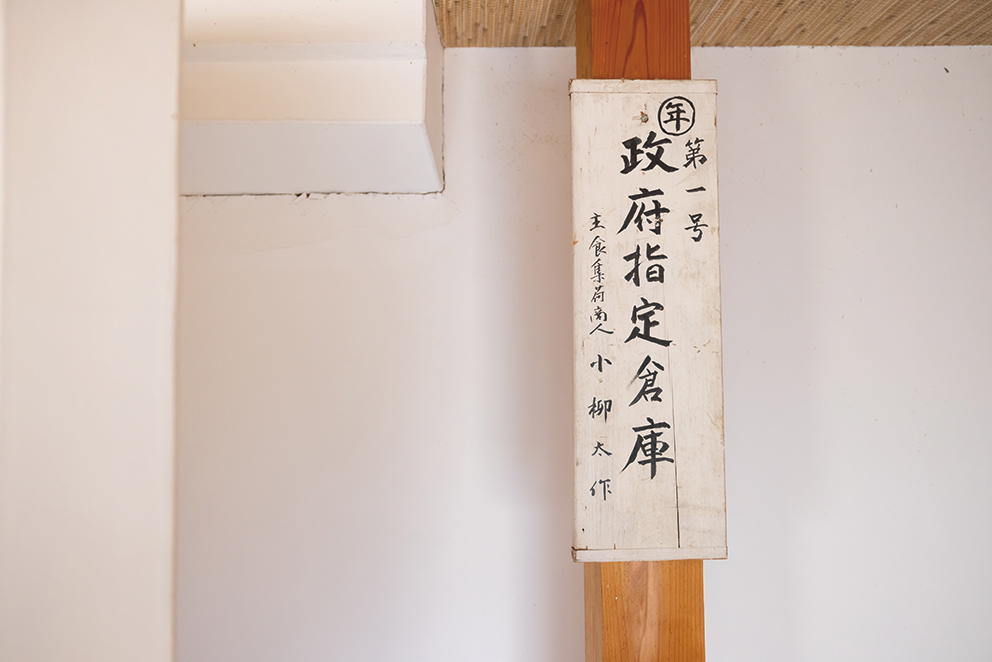 ㊥第一号
政府指定倉庫
主食集荷商人 小柳太作